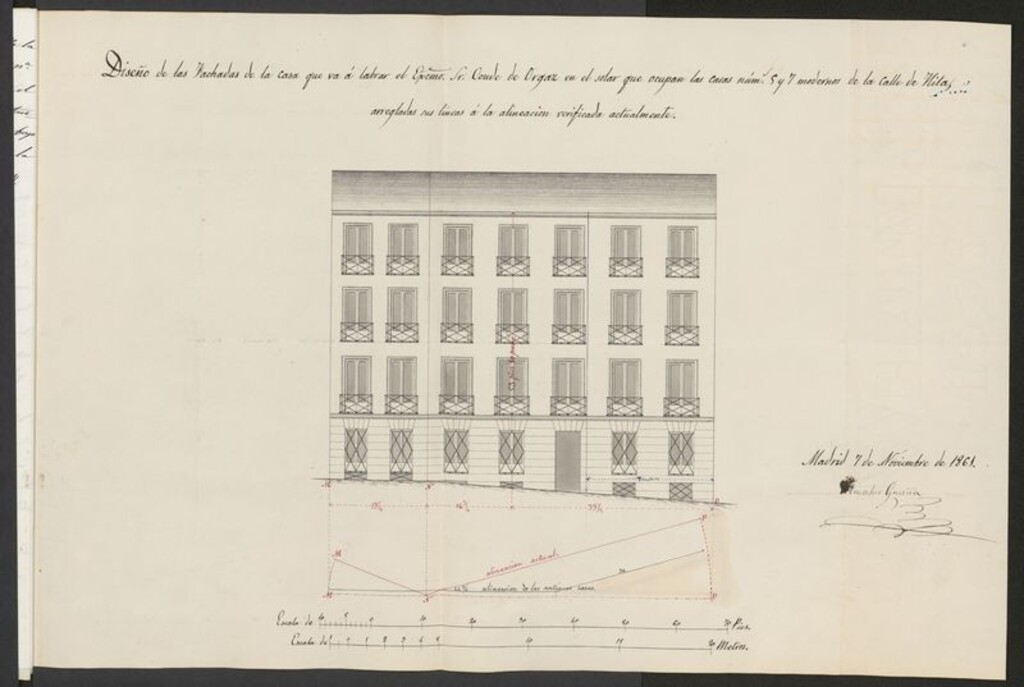 Diseño de las Fachadas de la casa que va á labrar el Excmo. Sr. Conde de Orgaz en el solar que ocupan las casas núms. 5 y 7 modernos de la calle de Hita,
arregladas sus lineas á la alineacion verificada actualmente.
Madrid 7 de Noviembre de 1861.
M N P
M
alineacion actual
alineacion de las antiguas casas
M N P
Escala de 10 5 0 10 20 30 40 50 60 70 Pies.
Escala de 1 0 1 2 3 4 5 10 15 20 Metros.